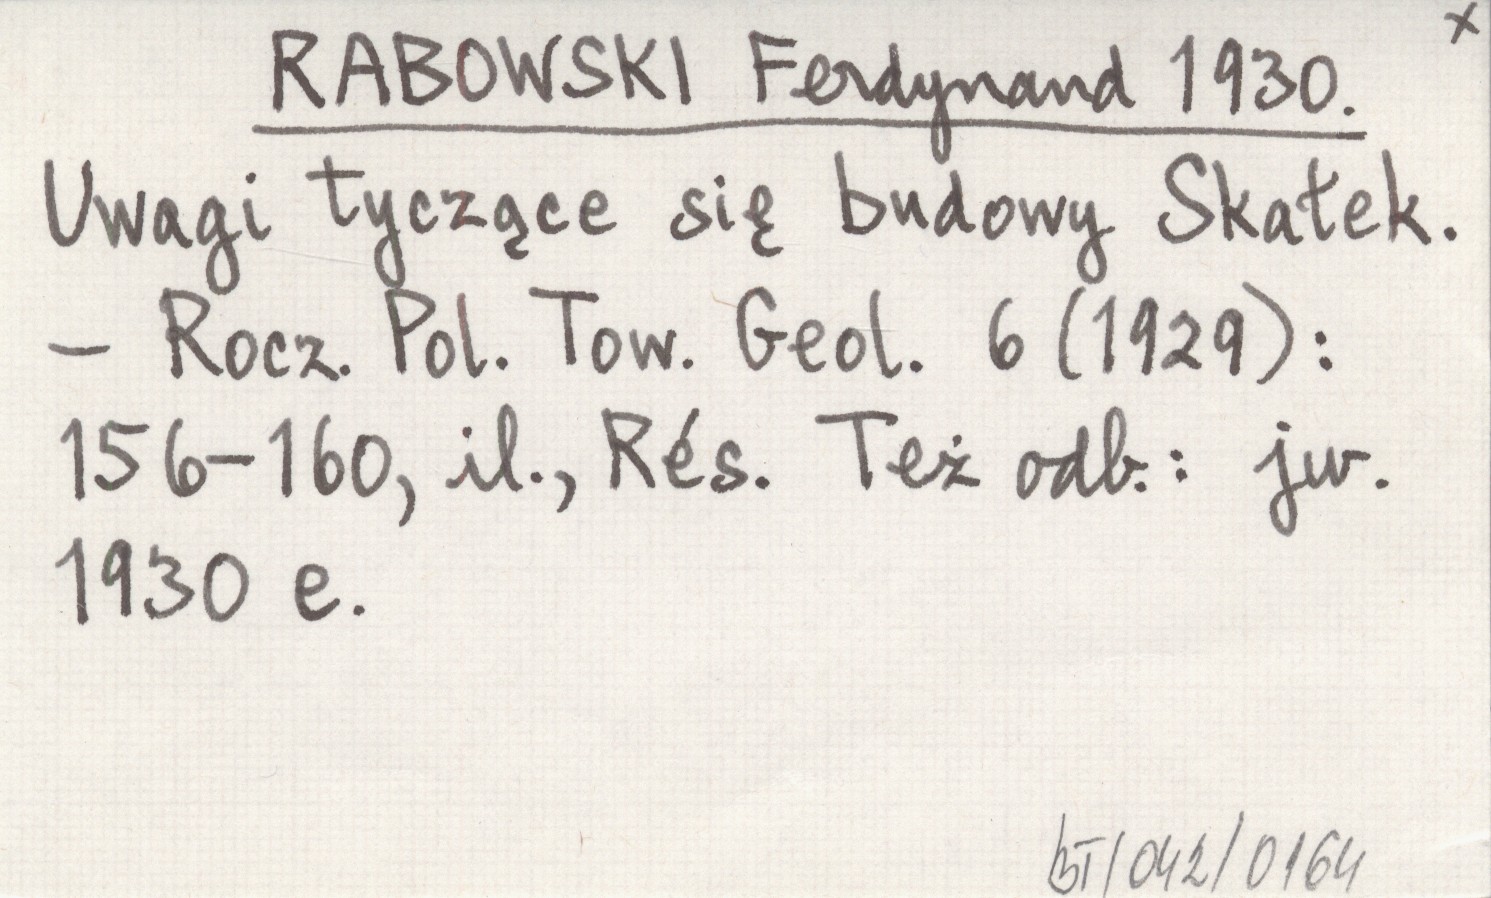 x
RABOWSKI Ferdynand 1930.
Uwagi tyczące się budowy Skałek.
– Rocz. Pol. Tow. Geol. 6 (1929):
156–160, il., Rés. Też odb.: jw.
1930 e.
bT/042/0164